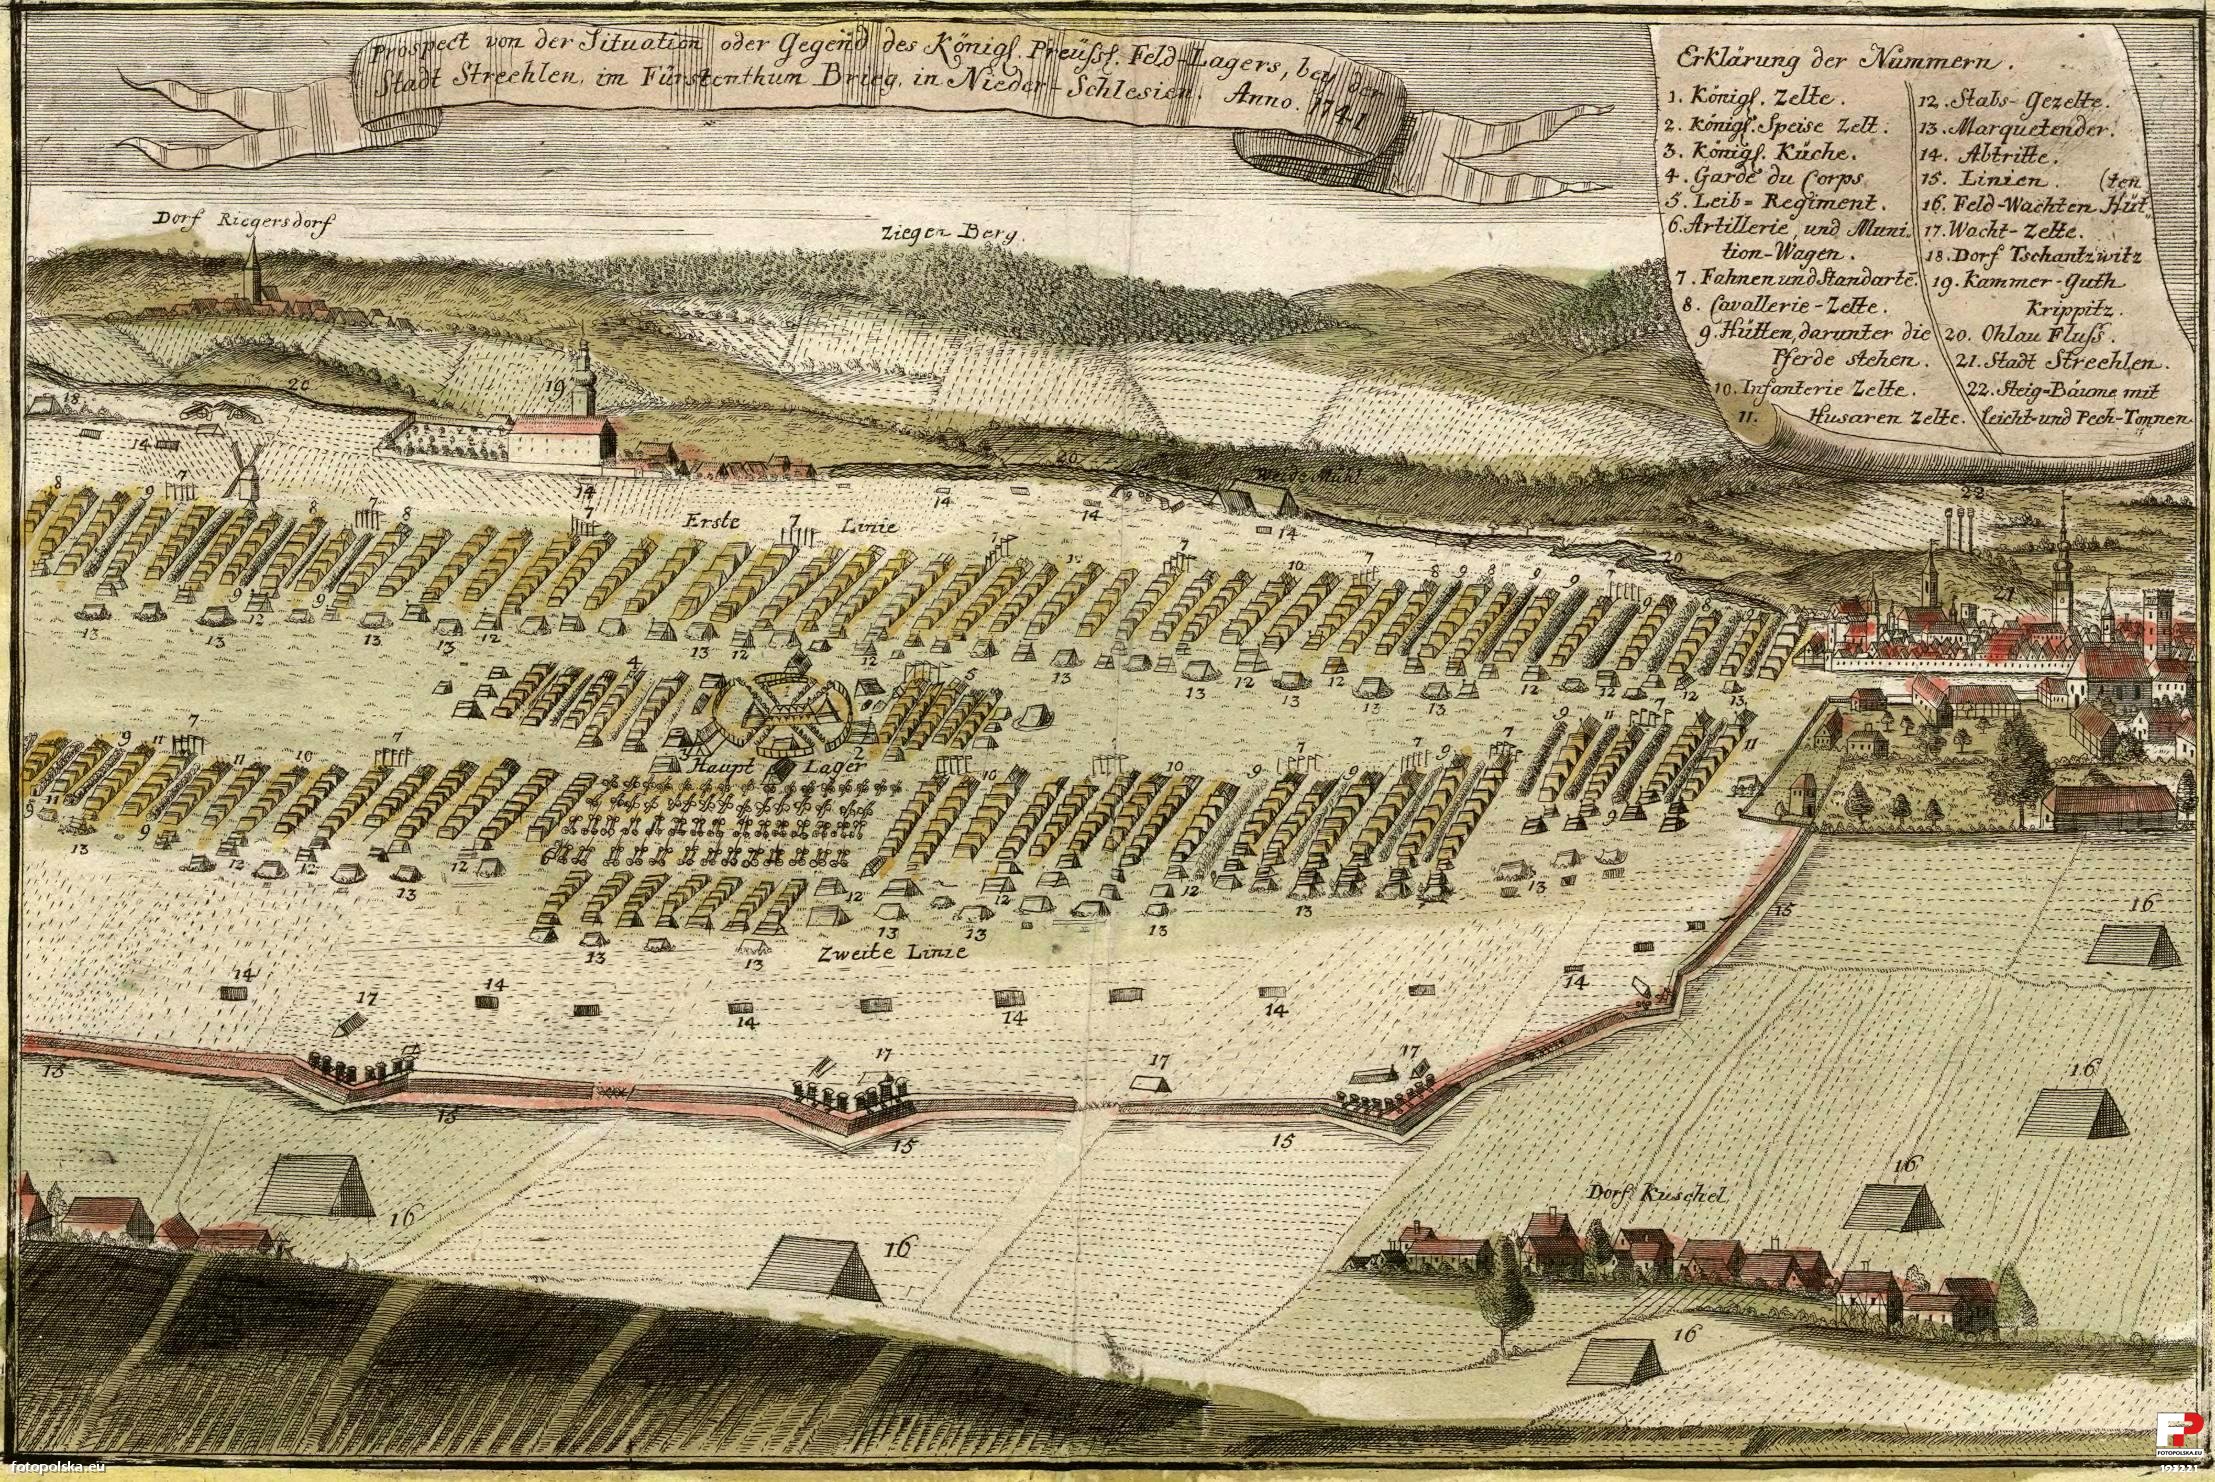 Prospect von der Situation oder Gegend des Königl. Preüssl. Feld-Lagers, bey der
Stadt Strechlen, im Fürstenthum Brieg, in Nieder-Schlesien. Anno. 1741
Erklärung der Nummern.
1. Königl. Zelte.
2. Königl. Speise Zelt.
3. Königl. Küche.
4. Garde du Corps
5. Leib-Regiment.
6. Artillerie, und Muni-
tion-Wagen.
7. Fahnen und Standarte.
8. Cavallerie-Zelte.
9. Hütten, darunter die
Pferde stehen.
10. Infanterie Zelte.
11. Husaren Zelte.
12. Stabs-Gezelte.
13. Marquetender.
14. Abtritte.
15. Linien. (ten
16. Feld-Wachten Hüt-
17. Wacht-Zelte.
18. Dorf Tschantzwitz
19. Kammer-Guth
Krippitz.
20. Ohlau Fluss.
21. Stadt Strechlen.
22. Steig-Bäume mit
leicht-und Pech-Tonnen
Dorf Riegersdorf
Ziegen Berg.
Weide Mühl
Erste Linie
Haupt Lager
Zweite Linie
Dorf Kuschel
fotopolska.eu
FOTOPOLSKA.EU
193221